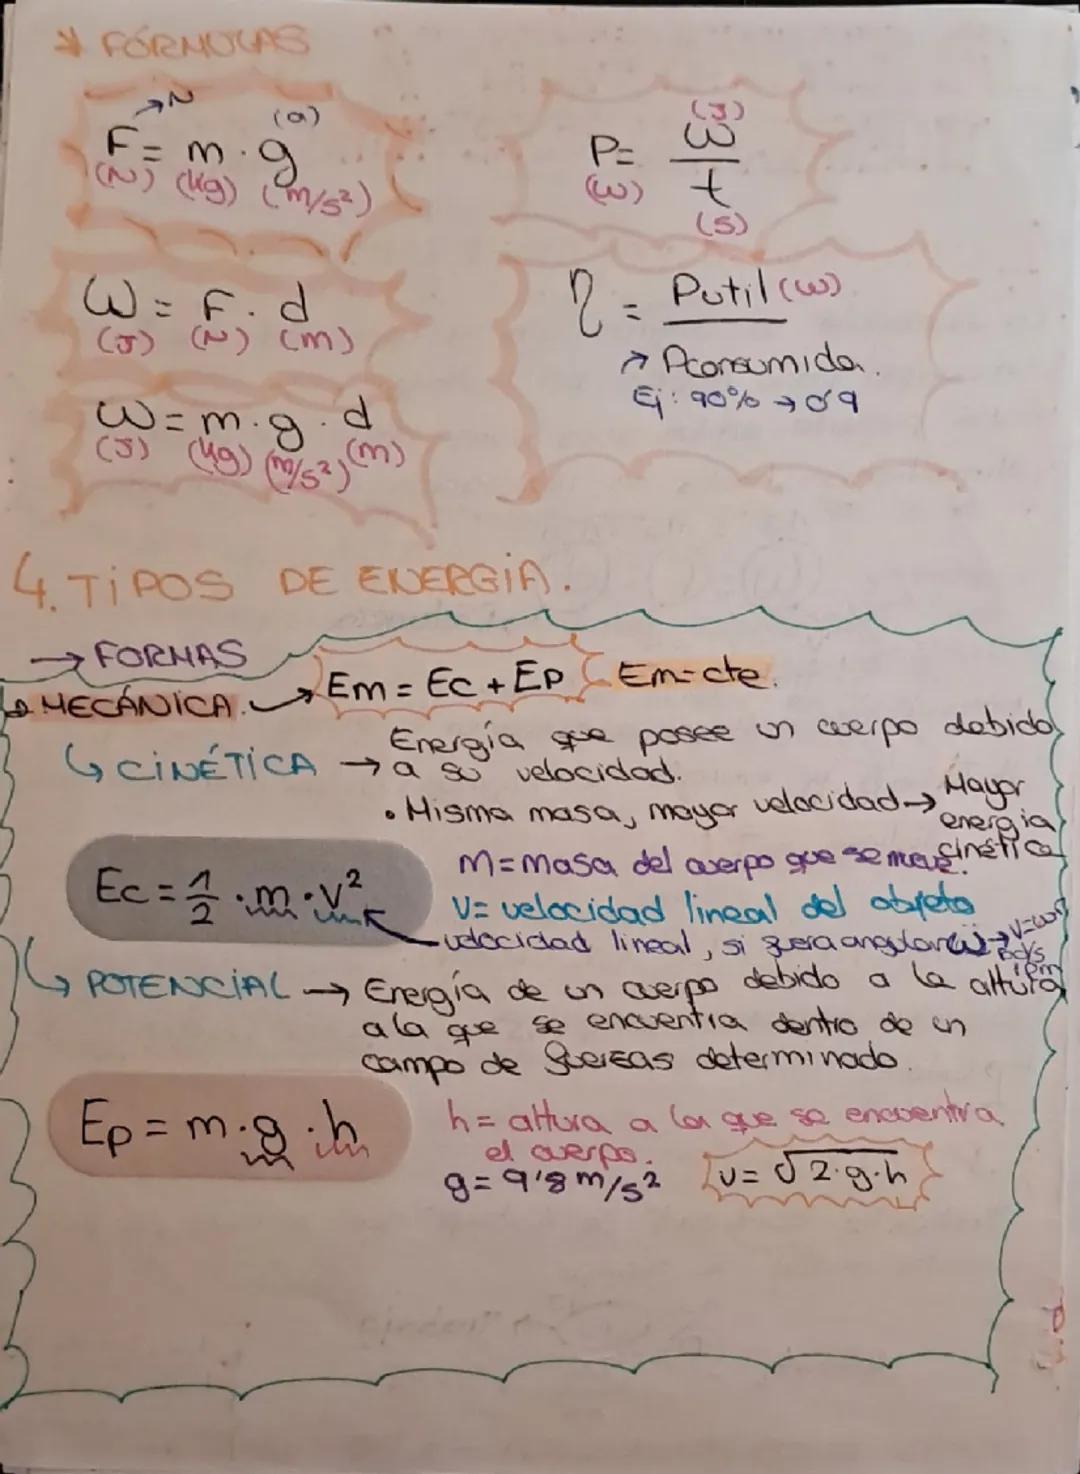 * FÓRMULAS
→N
(a)
F = m · g
(N) (Kg) (m/s²)
W = F · d
(J) (N) (m)
W = m · g · d
(J) (Kg) (m/s²) (m)
(J)
P = W / t
(W)
(S)
η = Putil (W)
→ Pconsumida.
Ej: 90% → 0'9
4. TIPOS DE ENERGÍA.
→ FORMAS
MECÁNICA. → Em = Ec + Ep Em = cte.
↳ CINÉTICA → Energía que posee un cuerpo debido
a su velocidad.
• Misma masa, mayor velocidad → Mayor
energia
cinética
Ec = 1/2 · m · v²
m = masa del cuerpo que se mueve.
V = velocidad lineal del objeto
velocidad lineal, si fuera angular ω →
↳ POTENCIAL → Energía de un cuerpo debido a la altura
a la que se encuentra dentro de un
campo de fuerzas determinado.
Ep = m · g · h
h = altura a la que se encuentra
el cuerpo.
g = 9'8 m/s² v = √2·g·h